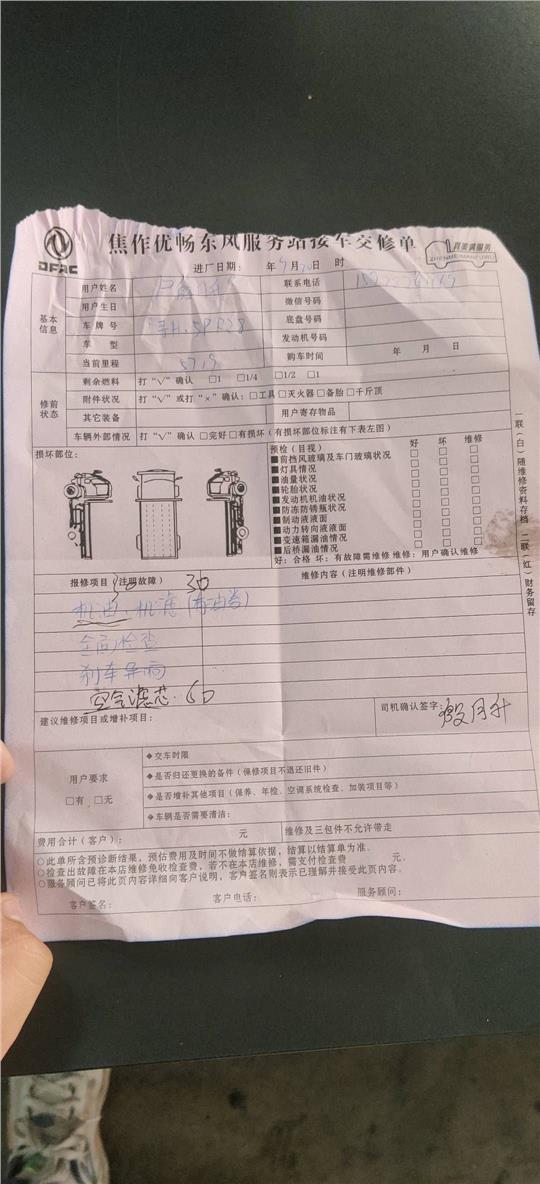 DFAC
焦作优畅东风服务站接车交修单
真美满服务
ZHENMEIMANFUWU
进厂日期： 年 月 日 时
基本信息
用户姓名
联系电话
用户生日
微信号码
车牌号
底盘号码
车型
发动机号码
当前里程 5719
购车时间 年 月 日
修前状态
剩余燃料 打“√”确认 □1 □1/4 □1/2 □1
附件状况 打“√”或打“×”确认：□工具□灭火器□备胎□千斤顶
其它装备
用户寄存物品
车辆外部情况 打“√”确认 □完好□有损坏（有损坏部位标注有下表左图）
损坏部位：
预检（目视） 好 坏 维修
■前挡风玻璃及车门玻璃状况 □ □ □
■灯具情况 □ □ □
■油量状况 □ □ □
■轮胎状况 □ □ □
■发动机机油状况 □ □ □
■防冻防锈瓶状况 □ □ □
■制动液液面 □ □ □
■动力转向液液面 □ □ □
■变速箱漏油情况 □ □ □
■后桥漏油情况 □ □ □
好：合格 坏：有故障需维修 维修：用户确认维修
报修项目（注明故障） 30
维修内容（注明维修部件）
机油、机滤（有油券）
全面检查
刹车异响
空气滤芯 60
建议维修项目或增补项目：
司机确认签字：殷月升
用户要求
□有 □无
◆交车时限
◆是否归还更换的备件（保修项目不退还旧件）
◆是否增补其他项目（保养、年检、空调系统检查、加装项目等）
◆车辆是否需要清洁：
费用合计（客户）： 元
维修及三包件不允许带走
○此单所含预诊断结果，预估费用及时间不做结算依据，结算以结算单为准。
○检查出故障在本店维修免收检查费，若不在本店维修，需支付检查费 元。
○服务顾问已将此页内容详细向客户说明，客户签名则表示已理解并接受此页内容。
客户签名： 客户电话： 服务顾问：
一联（白）随维修资料存档 二联（红）财务留存